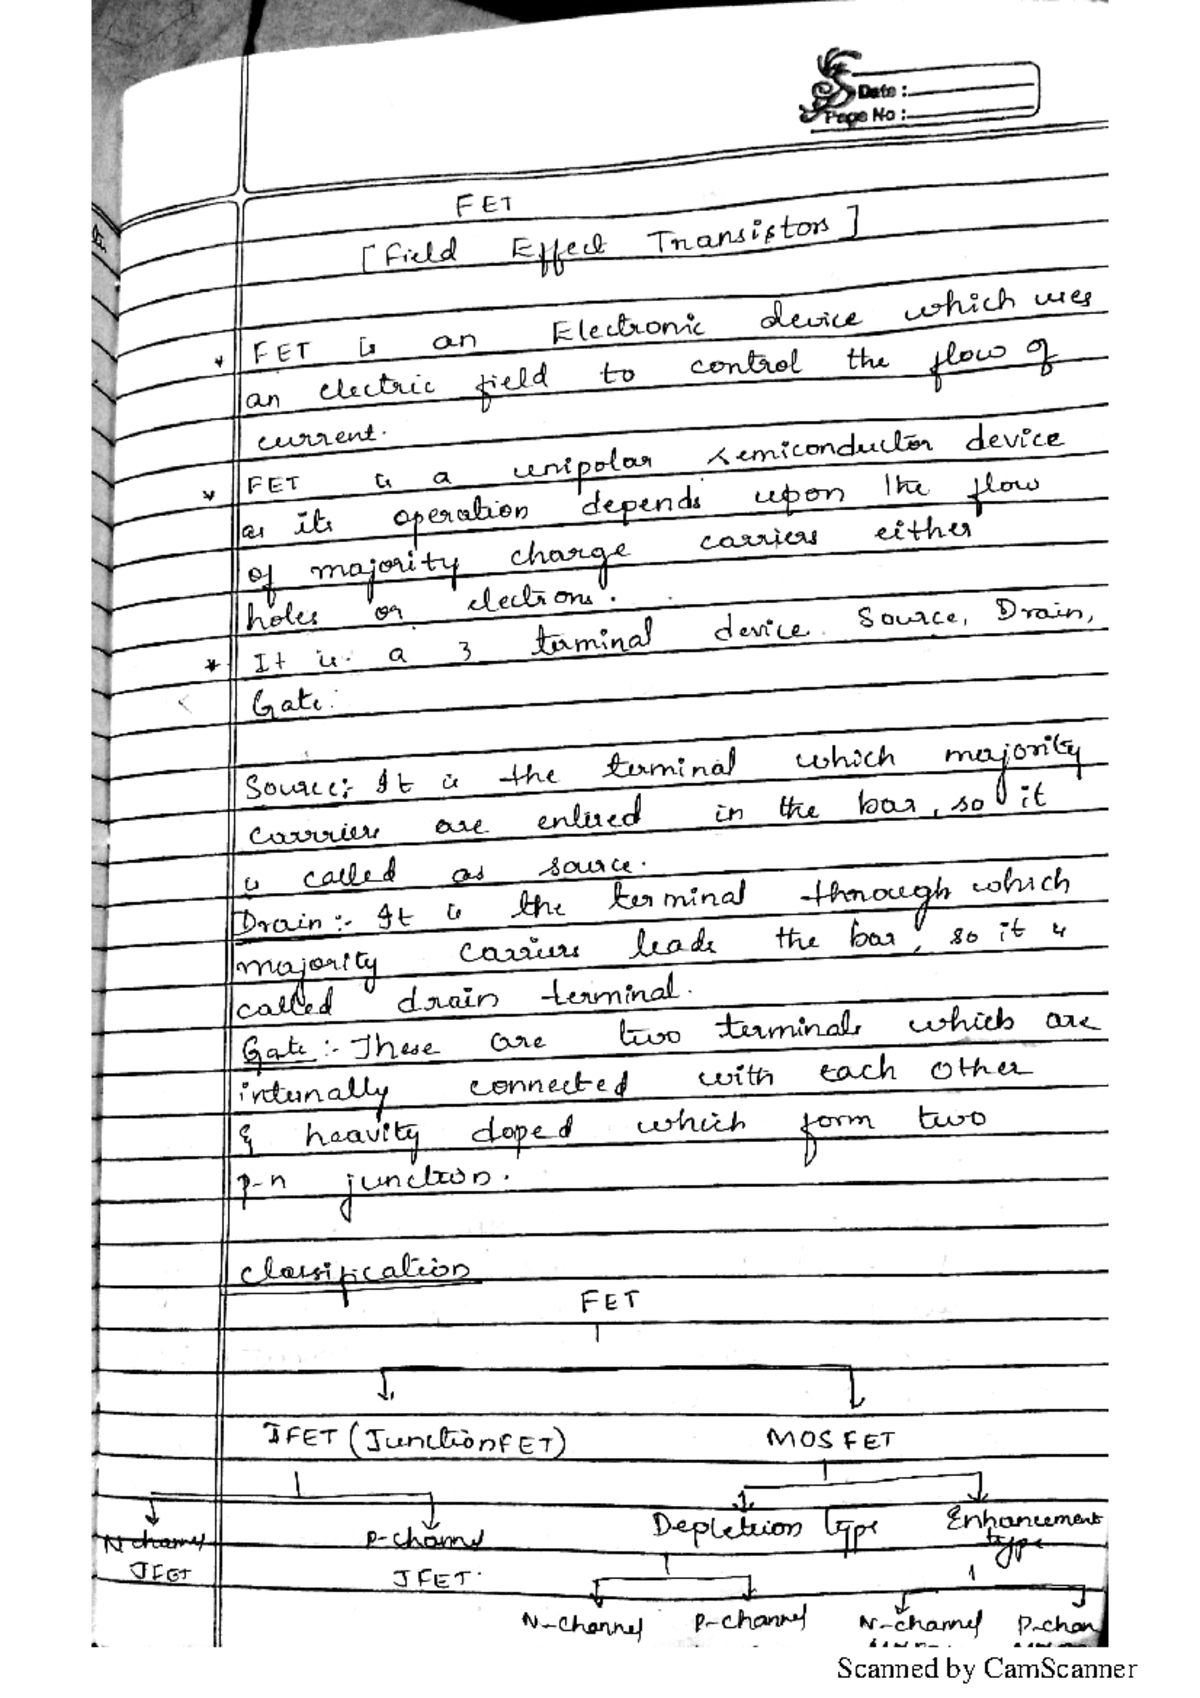 Date :
Page No :
FET
[Field Effect Transistors]
* FET is an Electronic device which uses
an electric field to control the flow of
current.
* FET is a unipolar semiconductor device
as its operation depends upon the flow
of majority charge carriers either
holes or electrons.
* It is a 3 terminal device. Source, Drain,
Gate.
Source:- It is the terminal which majority
carriers are entered in the bar, so it
is called as source.
Drain :- It is the terminal through which
majority carriers leads the bar, so it is
called drain terminal.
Gate :- These are two terminals which are
internally connected with each other
& heavity doped which form two
p-n junction.
Classification
FET
JFET (Junction FET) MOSFET
N-channel P-channel Depletion Type Enhancement
type
JFET JFET.
N-channel P-channel N-channel P-chan
Scanned by CamScanner